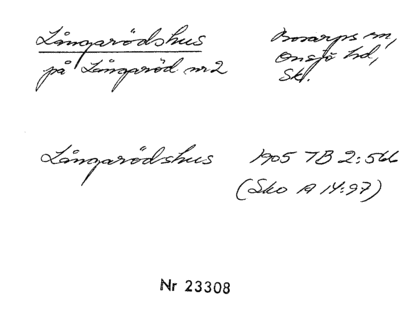 Långarödshus
på Långaröd nr 2
Bosarps sn,
Onsjö hd,
Sk.
Långarödshus 1905 TB 2:566
(Sko A 14:97)
Nr 23308